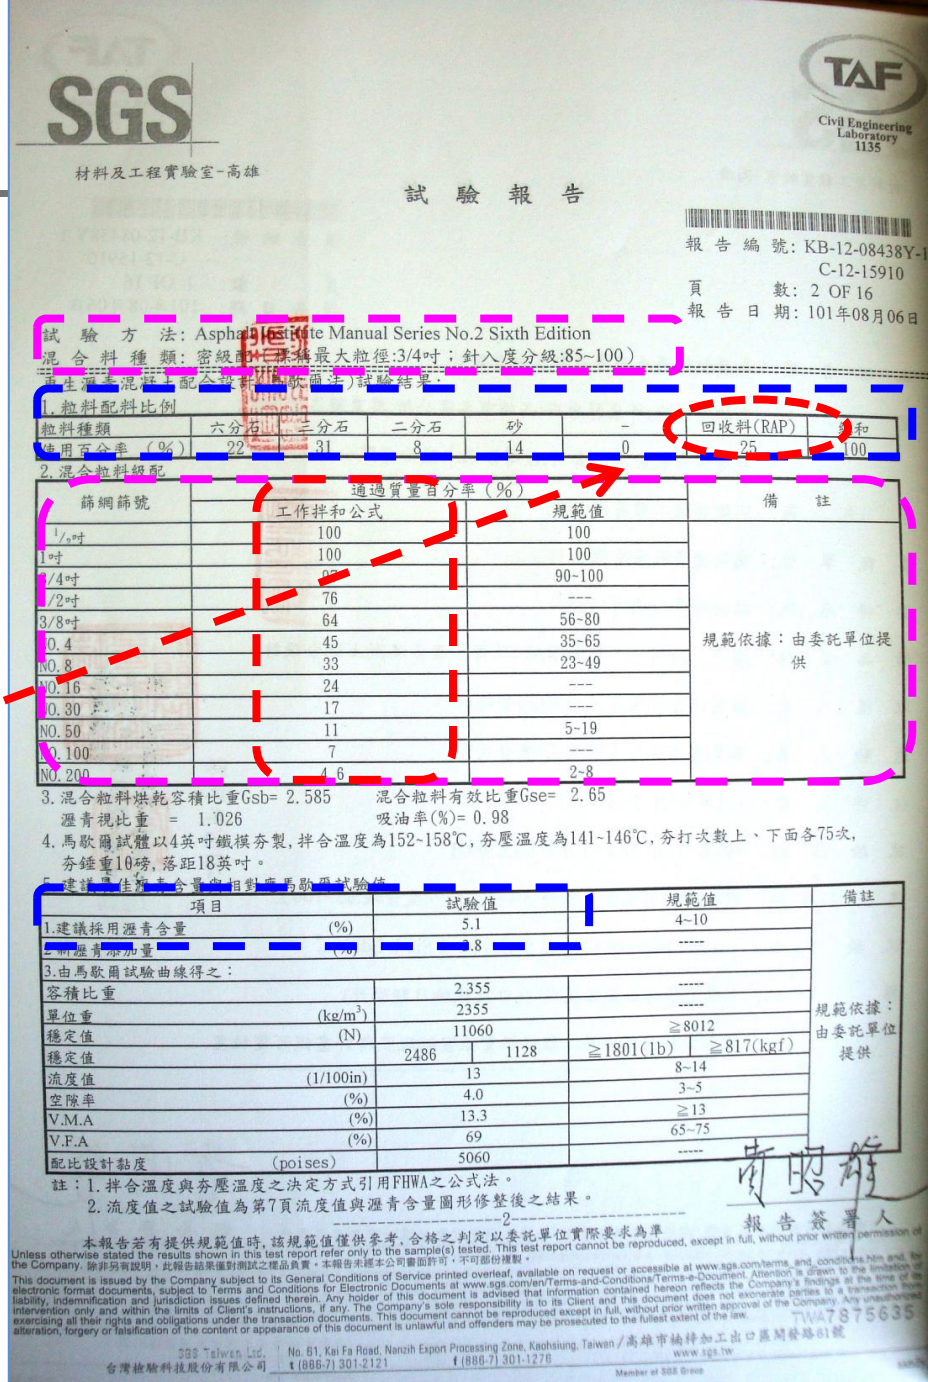 TAF
SGS
TAF
Civil Engineering
Laboratory
1135
材料及工程實驗室-高雄
試 驗 報 告
報 告 編 號: KB-12-08438Y-1
C-12-15910
頁 數: 2 OF 16
報 告 日 期: 101年08月06日
試 驗 方 法: Asphalt Institute Manual Series No.2 Sixth Edition
混 合 料 種 類: 密級配 (標稱最大粒徑:3/4吋；針入度分級:85~100)
再生瀝青混凝土配合設計(馬歇爾法)試驗結果:
1. 粒料配料比例
粒料種類 六分石 三分石 二分石 砂 - 回收料(RAP) 總和
使用百分率 (%) 22 31 8 14 0 25 100
2. 混合粒料級配
篩網篩號 通過質量百分率 (%) 備 註
工作拌和公式 規範值
100 100
1吋 100 100
3/4吋 90~100
1/2吋 76 ---
3/8吋 64 56~80
NO. 4 45 35~65
NO. 8 33 23~49
NO. 16 24 ---
NO. 30 17 ---
NO. 50 11 5~19
NO. 100 7 ---
NO. 200 4.6 2~8
規範依據：由委託單位提
供
3. 混合粒料烘乾容積比重Gsb= 2.585 混合粒料有效比重Gse= 2.65
瀝青視比重 = 1.026 吸油率(%)= 0.98
4. 馬歇爾試體以4英吋鐵模夯製, 拌合溫度為152~158℃, 夯壓溫度為141~146℃, 夯打次數上、下面各75次,
夯錘重10磅, 落距18英吋。
5. 建議最佳瀝青含量與相對應馬歇爾試驗值
項目 試驗值 規範值 備註
1.建議採用瀝青含量 (%) 5.1 4~10
2 新瀝青添加量 (%) .8 -----
3.由馬歇爾試驗曲線得之：
容積比重 2.355 -----
單位重 (kg/m³) 2355 -----
穩定值 (N) 11060 ≧8012
穩定值 2486 1128 ≧1801(lb) ≧817(kgf)
流度值 (1/100in) 13 8~14
空隙率 (%) 4.0 3~5
V.M.A (%) 13.3 ≧13
V.F.A (%) 69 65~75
配比設計黏度 (poises) 5060 -----
規範依據：
由委託單位
提供
註：1. 拌合溫度與夯壓溫度之決定方式引用FHWA之公式法。
2. 流度值之試驗值為第7頁流度值與瀝青含量圖形修整後之結果。
-2-
報 告 簽 署 人
本報告若有提供規範值時, 該規範值僅供參考, 合格之判定以委託單位實際要求為準
Unless otherwise stated the results shown in this test report refer only to the sample(s) tested. This test report cannot be reproduced, except in full, without prior written permission of
the Company. 除非另有說明，此報告結果僅對測試之樣品負責。本報告未經本公司書面許可，不可部份複製。
This document is issued by the Company subject to its General Conditions of Service printed overleaf, available on request or accessible at www.sgs.com/terms_and_conditions.htm and, for
electronic format documents, subject to Terms and Conditions for Electronic Documents at www.sgs.com/en/Terms-and-Conditions/Terms-e-Document. Attention is drawn to the limitation of
liability, indemnification and jurisdiction issues defined therein. Any holder of this document is advised that information contained hereon reflects the Company's findings at the time of its
intervention only and within the limits of Client's instructions, if any. The Company's sole responsibility is to its Client and this document does not exonerate parties to a transaction from
exercising all their rights and obligations under the transaction documents. This document cannot be reproduced except in full, without prior written approval of the Company. Any unauthorized
alteration, forgery or falsification of the content or appearance of this document is unlawful and offenders may be prosecuted to the fullest extent of the law.
TWA7875635
SGS Taiwan Ltd. No. 61, Kai Fa Road, Nanzih Export Processing Zone, Kaohsiung, Taiwan / 高雄市楠梓加工出口區開發路61號
台灣檢驗科技股份有限公司 t (886-7) 301-2121 f (886-7) 301-1276 www.sgs.tw
Member of SGS Group